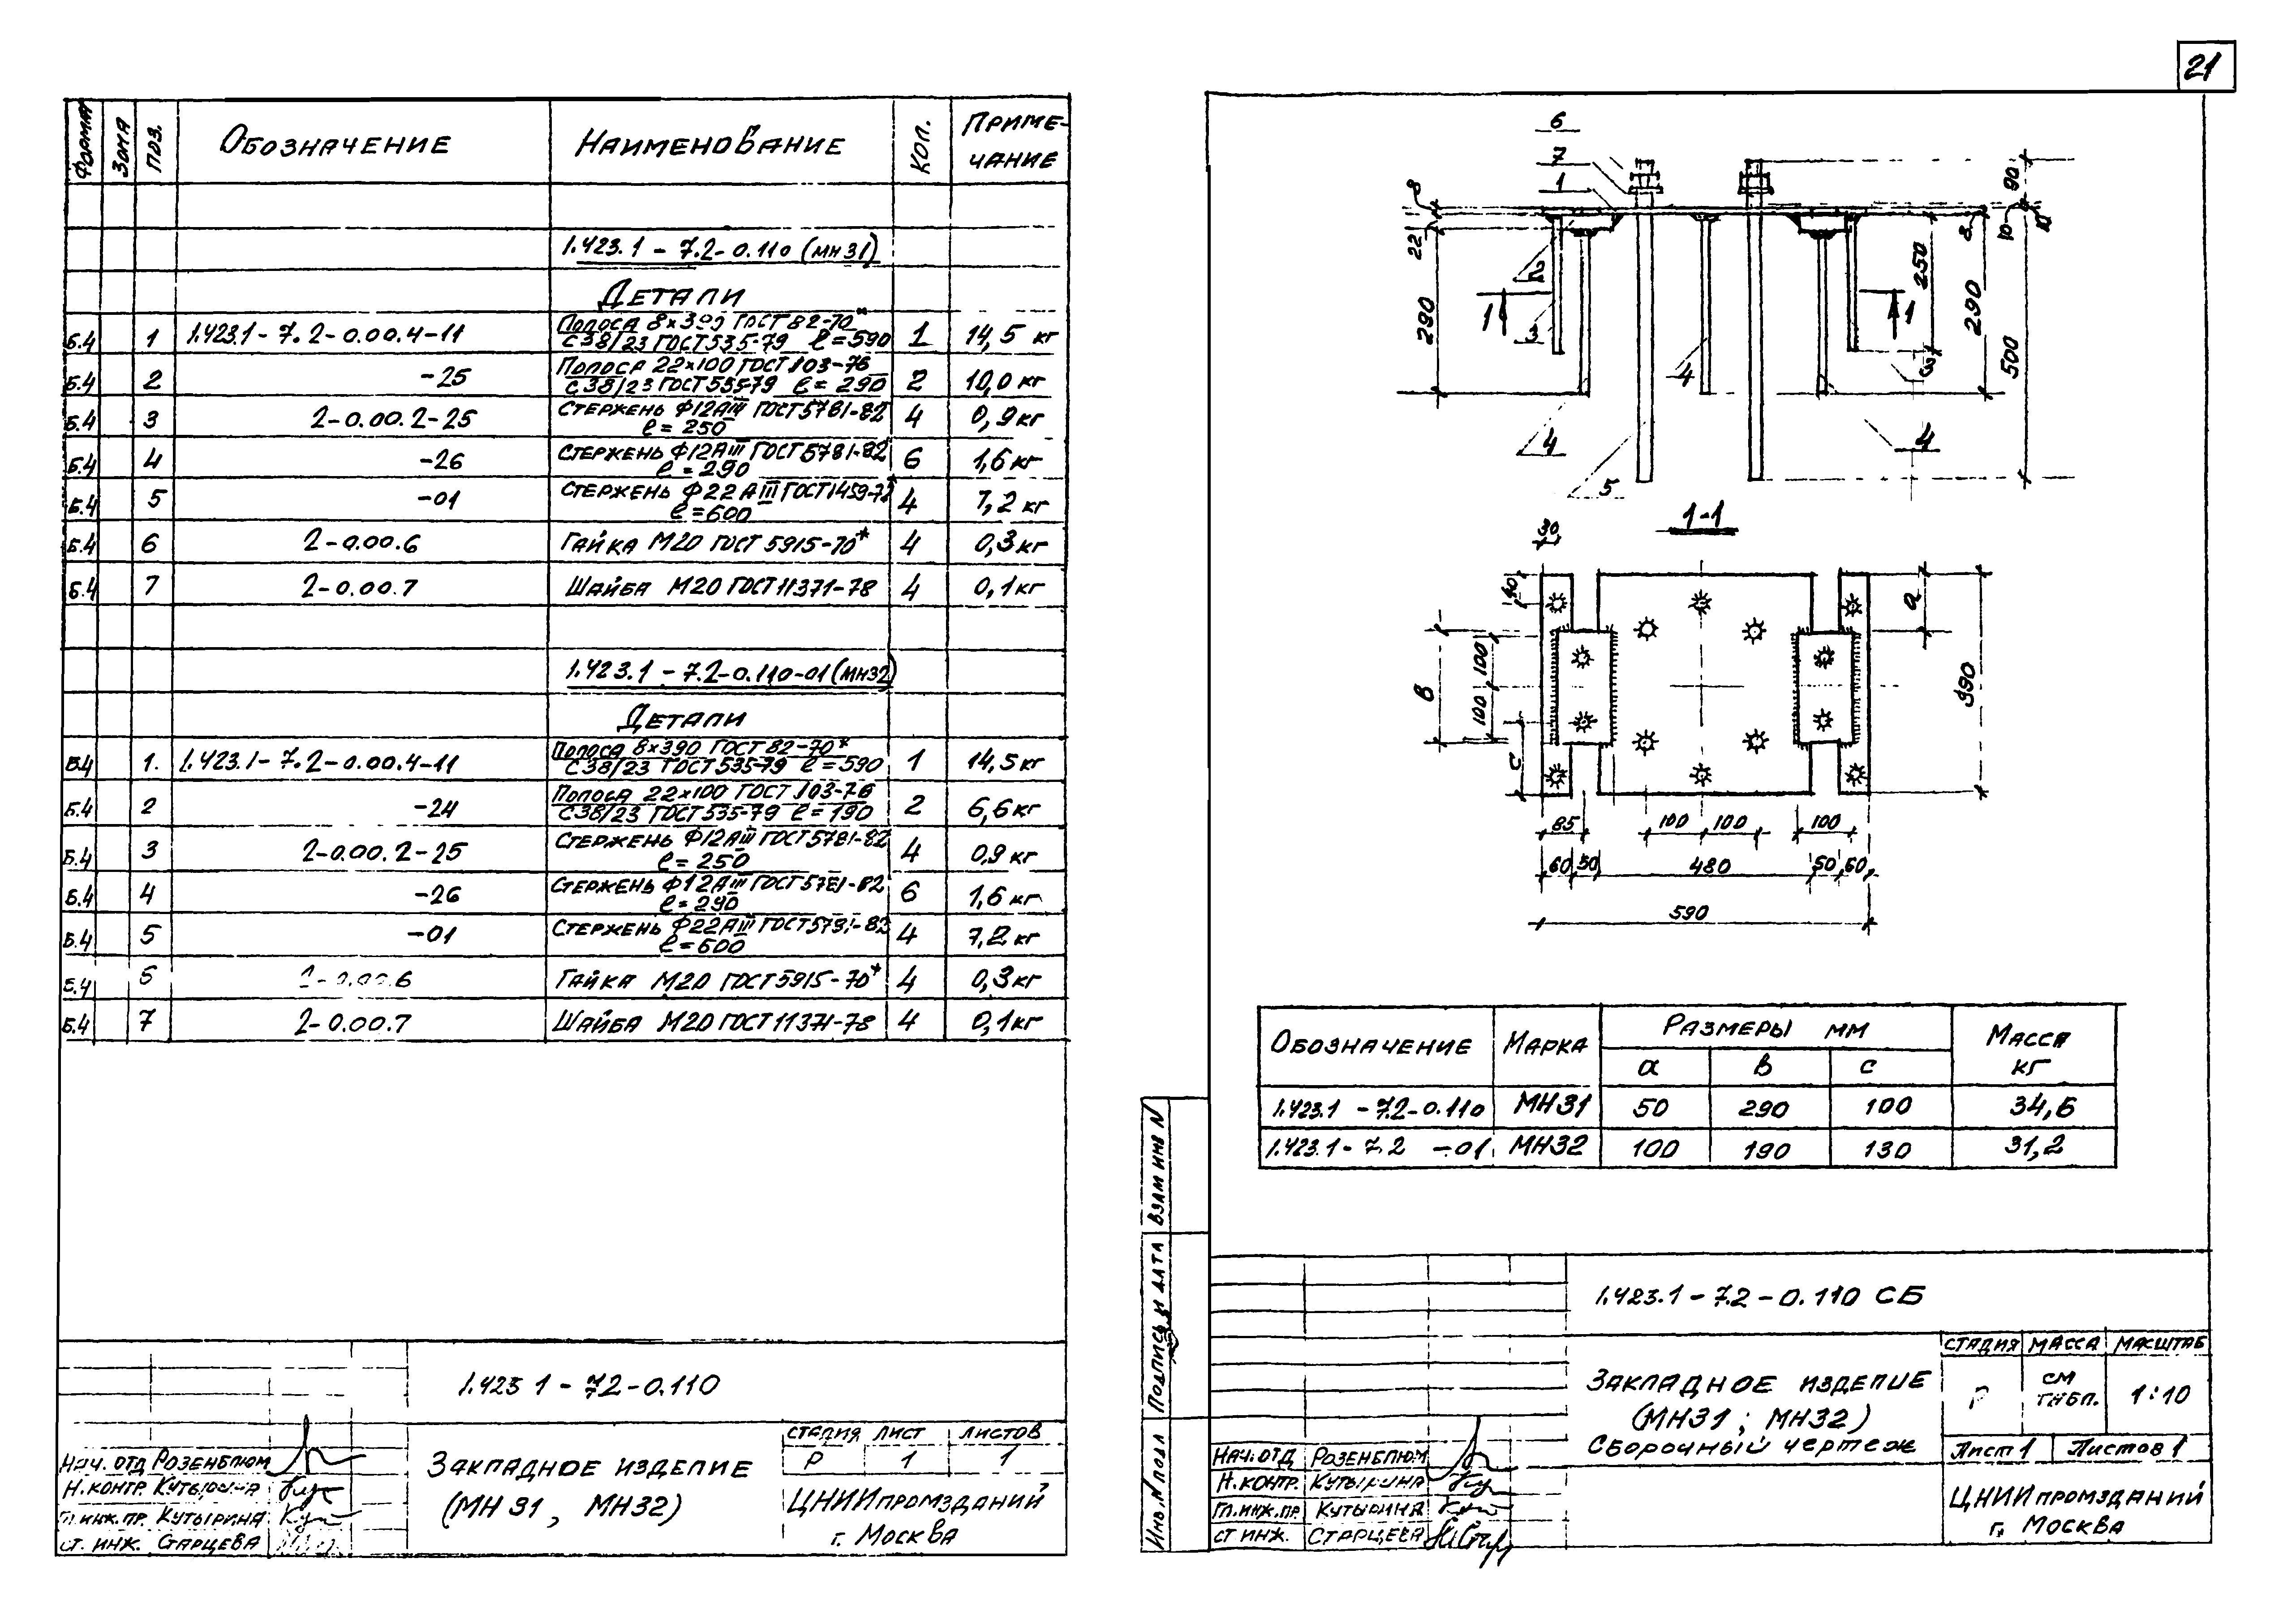 21
Форма Зона Поз. Обозначение Наименование Кол. Приме-
чание
1.423.1 - 7.2 - 0.110 (МН31)
Детали
Б.4 1 1.423.1 - 7.2 - 0.00.4-11 Полоса 8×390 ГОСТ 82-70* 1 14,5 кг
С38/23 ГОСТ 535-79 ℓ=590
Б.4 2 -25 Полоса 22×100 ГОСТ 103-76 2 10,0 кг
С38/23 ГОСТ 535-79 ℓ=290
Б.4 3 2-0.00.2-25 Стержень Ф12АIII ГОСТ 5781-82 4 0,9 кг
ℓ=250
Б.4 4 -26 Стержень Ф12АIII ГОСТ 5781-82 6 1,6 кг
ℓ=290
Б.4 5 -01 Стержень Ф22АIII ГОСТ 1459-72 4 7,2 кг
ℓ=600
Б.4 6 2-0.00.6 Гайка М20 ГОСТ 5915-70* 4 0,3 кг
Б.4 7 2-0.00.7 Шайба М20 ГОСТ 11371-78 4 0,1 кг
1.423.1 - 7.2-0.110-01 (МН32)
Детали
Б.4 1. 1.423.1- 7.2-0.00.4-11 Полоса 8×390 ГОСТ 82-70* 1 14,5 кг
С38/23 ГОСТ 535-79 ℓ=590
Б.4 2 -24 Полоса 22×100 ГОСТ 103-76 2 6,6 кг
С38/23 ГОСТ 535-79 ℓ=190
Б.4 3 2-0.00.2-25 Стержень Ф12АIII ГОСТ 5781-82 4 0,9 кг
ℓ=250
Б.4 4 -26 Стержень Ф12АIII ГОСТ 5781-82 6 1,6 кг
ℓ=290
Б.4 5 -01 Стержень Ф22АIII ГОСТ 5781-82 4 7,2 кг
ℓ=600
Б.4 6 2-0.00.6 Гайка М20 ГОСТ 5915-70* 4 0,3 кг
Б.4 7 2-0.00.7 Шайба М20 ГОСТ 11371-78 4 0,1 кг
1.423 1 - 7.2-0.110
Закладное изделие
(МН 31, МН32)
Стадия Лист Листов
Р 1 1
ЦНИИпромзданий
г. Москва
Нач. отд Розенблюм
Н.контр. Кутырина
Гл.инж.пр. Кутырина
Ст. инж. Старцева
6
7
1
8
22
290
2
3
4
5
1
4
1
3
4
250
8
290
10
90
500
1-1
30
50
100
100
в
с
а
390
85
100 100
100
60 50 480 50 60
590
Обозначение Марка Размеры мм Масса
кг
а в с
1.423.1 - 7.2-0.110 МН31 50 290 100 34,6
1.423.1- 7.2 -01 МН32 100 190 130 31,2
Инв.N подл Подпись и дата Взам инв N
1.423.1 - 7.2 - 0.110 СБ
Закладное изделие
(МН31; МН32)
Сборочный чертеж
Стадия Масса Масштаб
Р см
табл. 1:10
Лист 1 Листов 1
ЦНИИпромзданий
г. Москва
Нач. отд Розенблюм
Н.контр. Кутырина
Гл.инж.пр. Кутырина
Ст инж. Старцева